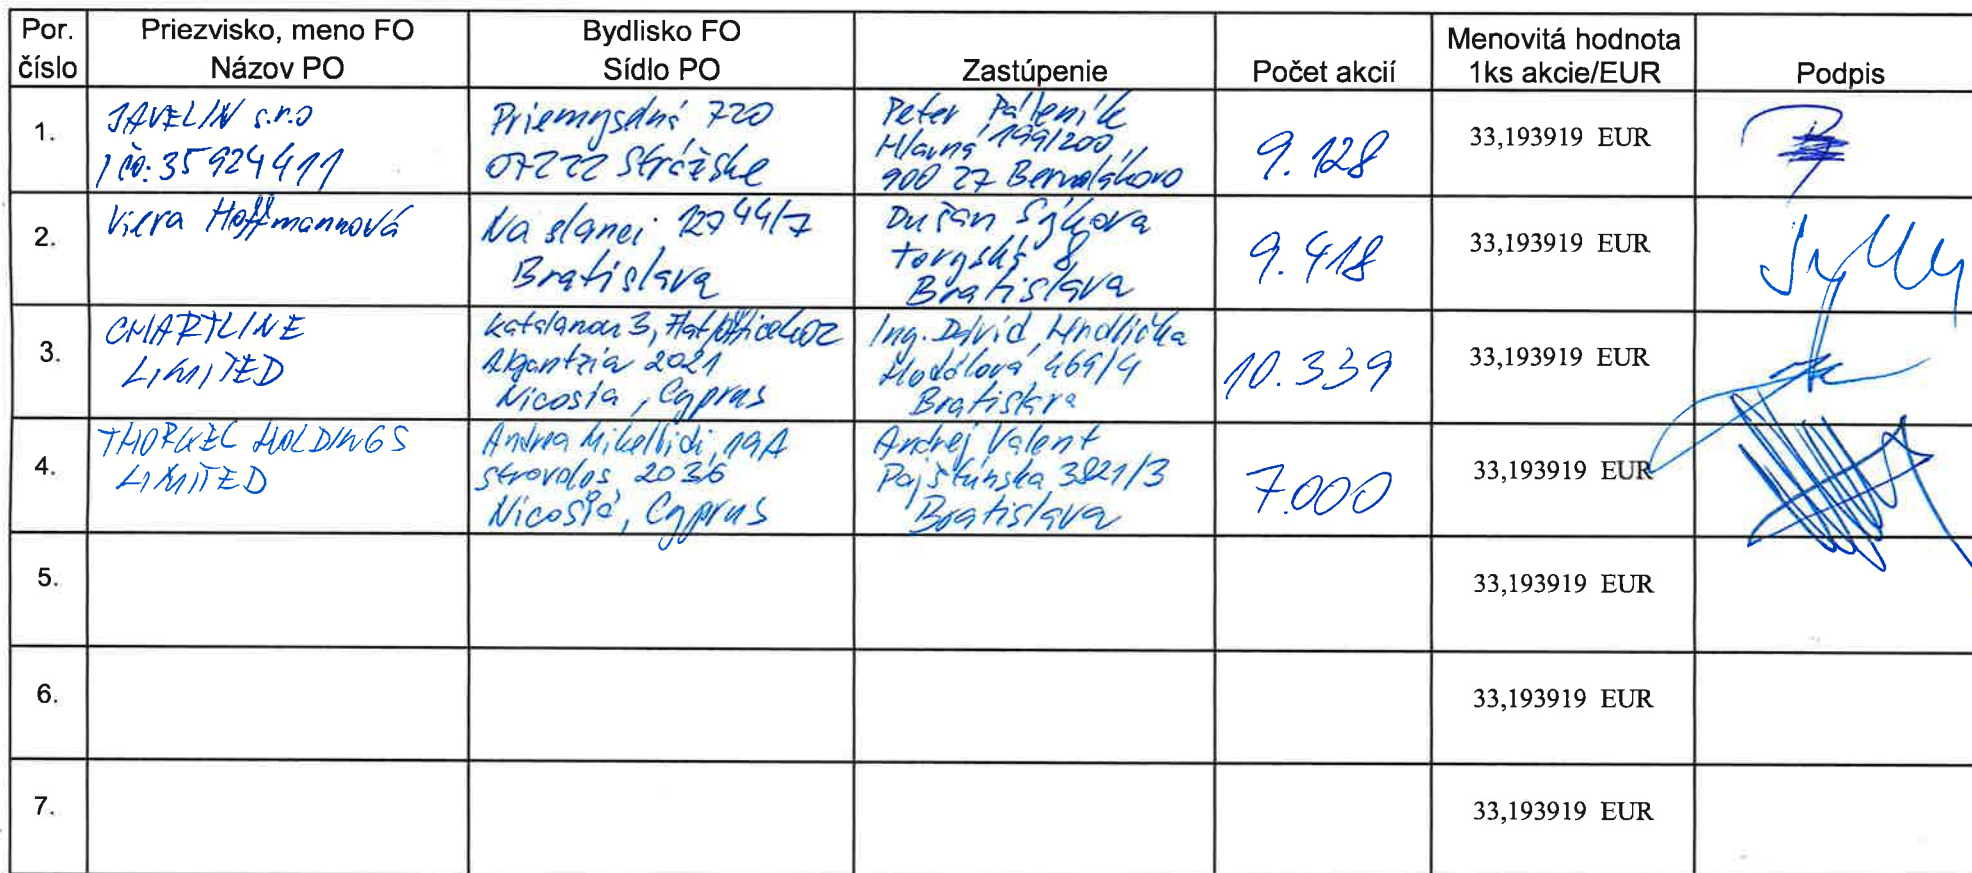 Por. číslo
Priezvisko, meno FO
Názov PO
Bydlisko FO
Sídlo PO
Zastúpenie
Počet akcií
Menovitá hodnota
1ks akcie/EUR
Podpis
1.
JAVELIN s.r.o
IČO: 35924411
Priemyselná 720
07222 Strážske
Peter Páleník
Hlavná 199/200,
900 27 Bernolákovo
9.128
33,193919 EUR
2.
Viera Hoffmannová
Na slanci 12744/7
Bratislava
Dušan Sýkora
Toryská 8
Bratislava
9.418
33,193919 EUR
3.
CHARTLINE
LIMITED
3, Flat/Office
2021
Nicosia, Cyprus
Ing. Dávid Hrdlička
469/4
Bratislava
10.339
33,193919 EUR
4.
HOLDINGS
LIMITED
Andrea Mikellidi, 19A
Strovolos 2036
Nicosia, Cyprus
Andrej Valent
Pajštúnska 3821/3
Bratislava
7.000
33,193919 EUR
5.
33,193919 EUR
6.
33,193919 EUR
7.
33,193919 EUR